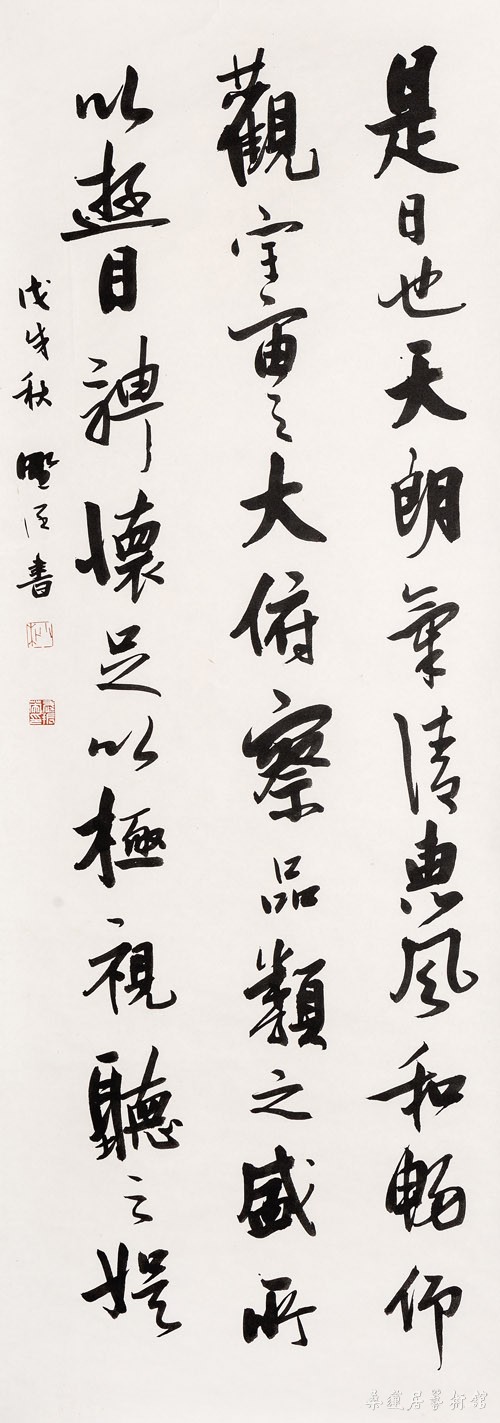 是日也天朗氣清惠風和暢仰
觀宇宙之大俯察品類之盛所
以遊目騁懷足以極視聽之娛
戊戌秋 書
桑蓮居藝術館